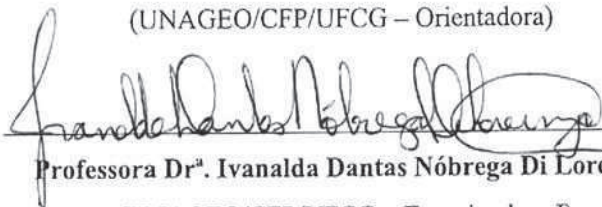 (UNAGEO/CFP/UFCG – Orientadora)
Ivanalda Dantas Nóbrega Di Lorenzo
Professora Drª. Ivanalda Dantas Nóbrega Di Lore